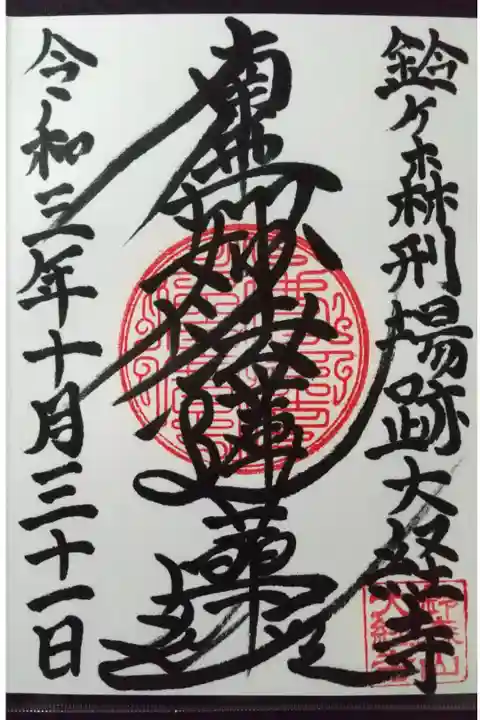 鈴ヶ森刑場跡大経寺
南無妙法蓮華経
令和三年十月三十一日